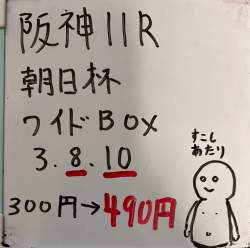 阪神11R
朝日杯
ワイドBOX
3.8.10
すこし
あたり
300円→490円